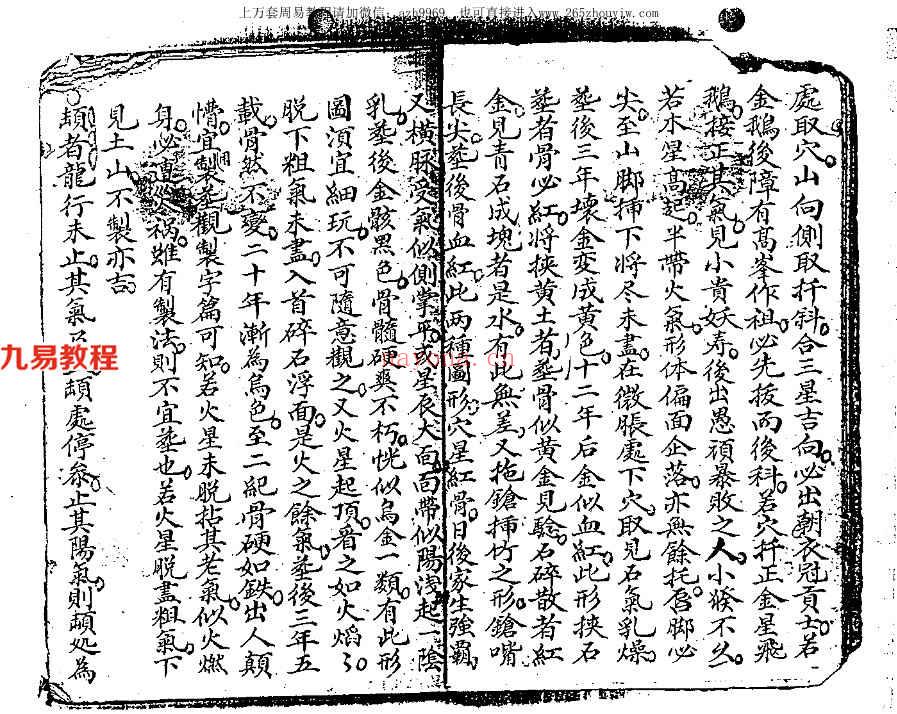 上万套周易教程请加微信：azh9969，也可直接进入www.265zhouyiw.com
處取穴山向側取扦斜合三星吉向必出朝衣冠貢士若
金鵝後障有高峯作祖必先拔而後科若穴扦正金星飛
鵝接正其氣見小貴妖壽後出愚頑暴敗之人小猴不么
若木星高起半帶火氣形体偏面企落亦無餘托唇脚必
尖至山脚揷下將尽未盡在微脹處下穴取見石氣乳燥
塟後三年壞金変成黃色十二年后金似血紅此形挾石
塟者骨必紅將挾黃土者塟骨似黃金見驗石碎散者紅
金見青石成塊者是水有此無差又拖鎗揷竹之形鎗嘴
長尖塟後骨血紅此两種圖形穴星紅骨日後家生強霸
又橫脉受氣似側掌平或星辰大面面带似陽浅起一陰
乳塟後金骸黑色骨髓硬與不朽恍似烏金一類有此形
圖須宜細玩不可隨意觀之又火星起頂看之如火熖
脱下粗氣未盡入首碎石浮面是火之餘氣塟後三年五
載骨然不變二十年漸為烏色至二紀骨硬如鉄出人顛
懵宜製塟觀製字篇可知若火星未脱拈其老氣似火燃
用
身必遭火祸雖有製法則不宜塟也若火星脱盡粗氣下
見土山不製亦吉
頏者龍行未止其氣 頏處停叅止其陽氣則頏処為
九易教程